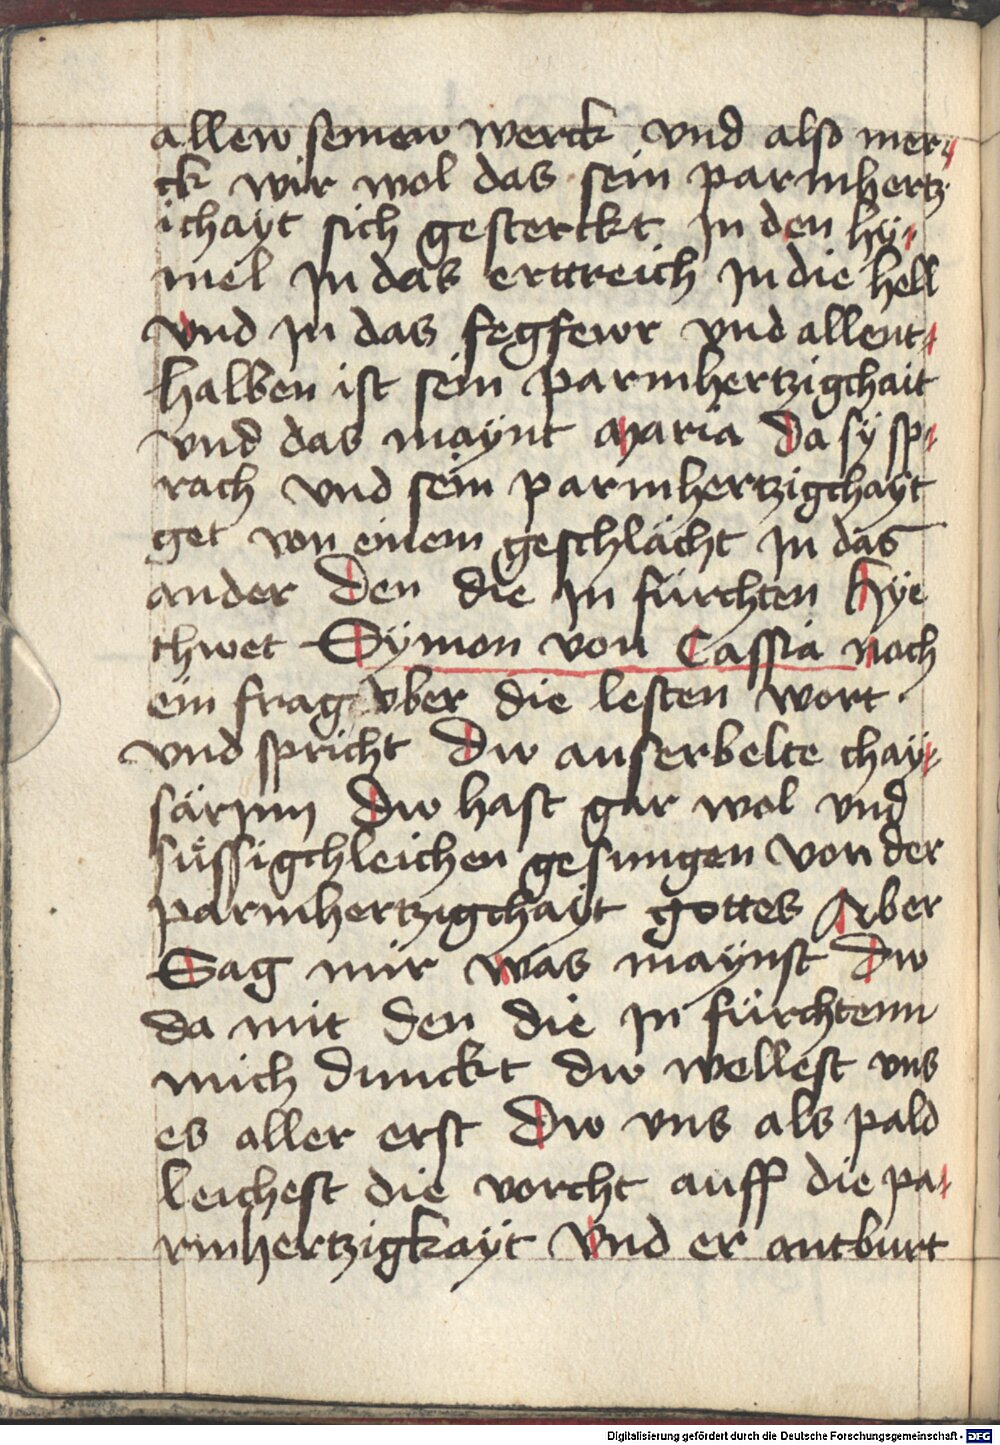 allew seinew werck vnd also mer⸗
ck wir wol das sein parmhertz⸗
ichayt sich gesterckt jn den hÿ⸗
mel jn das erttreich jn die hell
vnd jn das fegfewr vnd allent⸗
halben ist sein parmhertzigchait
vnd das maynt Maria Da sÿ sp⸗
rach vnd sein parmhertzigchaÿt
get von einem geschlächt jn das
ander Den die jn fürchten Hÿe
thwet Sÿmon von Cassia noch
ein frag vber die lesten wort
vnd spricht Dw auserbelte chaÿ⸗
särinn Dw hast gar wol vnd
süssigchleichen gesungen von der
parmhertzigchaÿt gottes Aber
Sag mir was maÿnst Dw
da mit Den die jn fürchtenn
mich dunckt dw wellest vns
es aller erst Dw vns als pald
leichest die vorcht auff die pa⸗
rmhertzigkaÿt Vnd er antburt
Digitalisierung gefördert durch die Deutsche Forschungsgemeinschaft - DFG